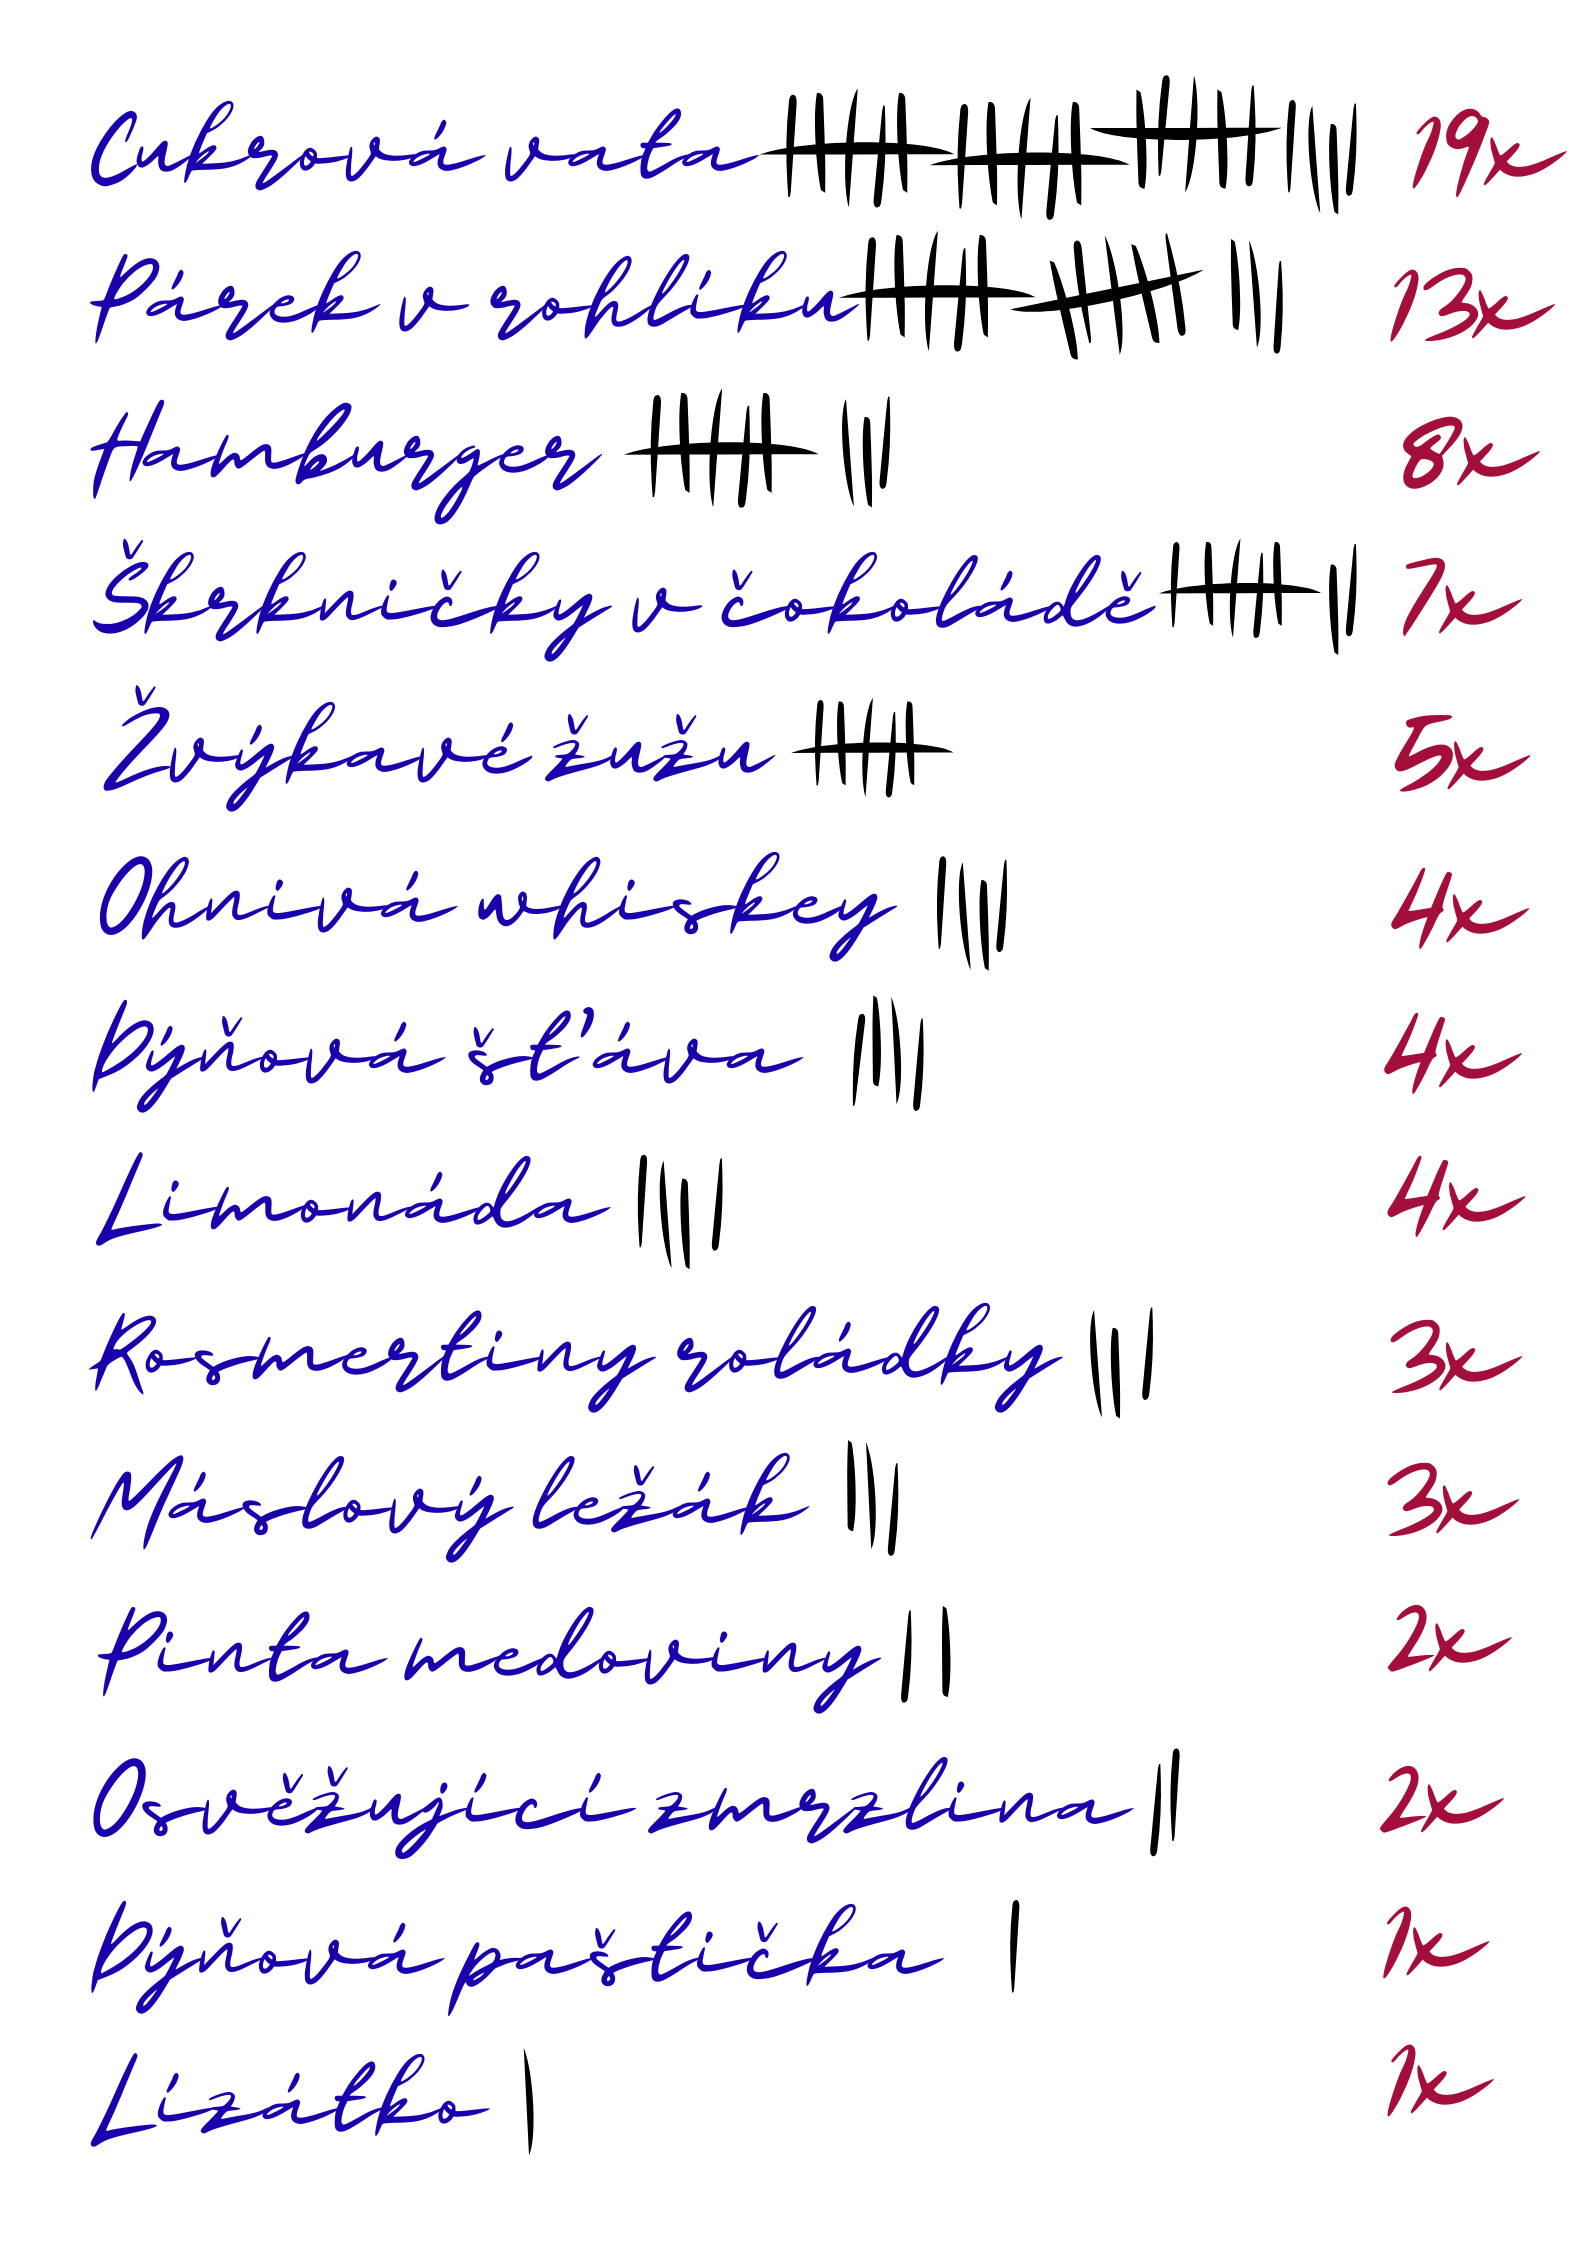 Cukrová vata 19x
Párek v rohlíku 13x
Hamburger 8x
Škrkničky v čokoládě 7x
Žvýkavé žužu 5x
Ohnivá whiskey 4x
Dýňová šťáva 4x
Limonáda 4x
Rosmertiny roládky 3x
Máslový ležák 3x
Pinta medoviny 2x
Osvěžující zmrzlina 2x
Dýňová paštička 1x
Lízátko 1x